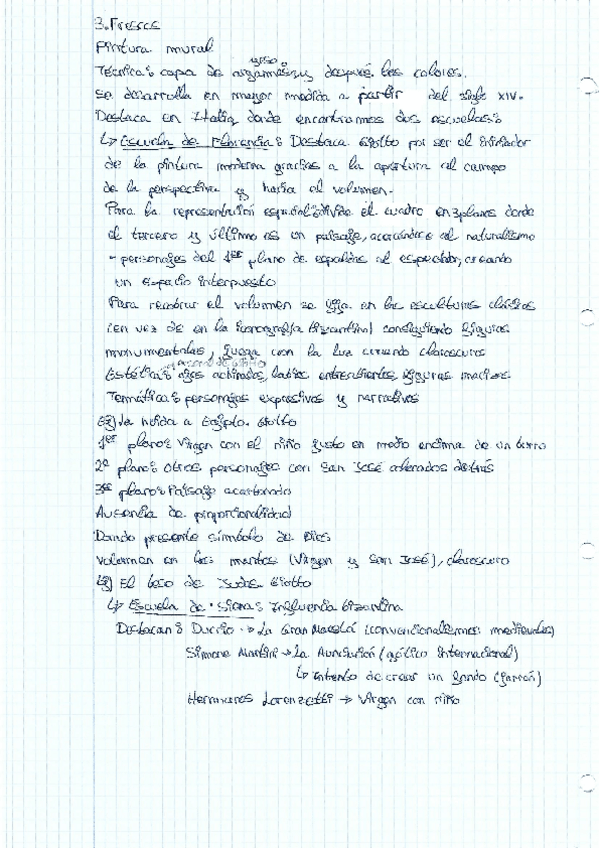 3. Fresco
Pintura mural
yeso
Técnica: capa de argamasa y después los colores.
Se desarrolla en mayor medida a partir del siglo XIV.
Destaca en Italia donde encontramos dos escuelas:
↳ Escuela de Florencia: Destaca Giotto por ser el iniciador
de la pintura moderna gracias a la apertura al campo
de la perspectiva y hacia el volumen.
Para la representación espacial: divide el cuadro en 3 planos donde
el tercero y último es un paisaje, acercándose al naturalismo
- personajes del 1er plano de espaldas al espectador, creando
un espacio interpuesto
Para recobrar el volumen se fija en las esculturas clásicas
(en vez de en la iconografía bizantina) consiguiendo figuras
monumentales, juega con la luz creando claroscuros
Estética: ojos achinados, labios entreabiertos, figuras macizas
Temática: personajes expresivos y narrativos
Ej) La huida a Egipto. Giotto
1er plano: Virgen con el niño justo en medio encima de un burro
2º plano: Otros personajes con San José detrás
3er plano: Paisaje acartonado
Ausencia de proporcionalidad
Dorado presente símbolo de Dios
Volumen en los mantos (Virgen y San José), claroscuro
Ej) El beso de Judas Giotto
↳ Escuela de Siena: Influencia bizantina
Destacan: Duccio → La Gran Maestá (convencionalismos medievales)
Simone Martini → La Anunciación (gótico internacional)
↳ Intento de crear un fondo (jarrón)
Hermanos Lorenzetti → Virgen con niño